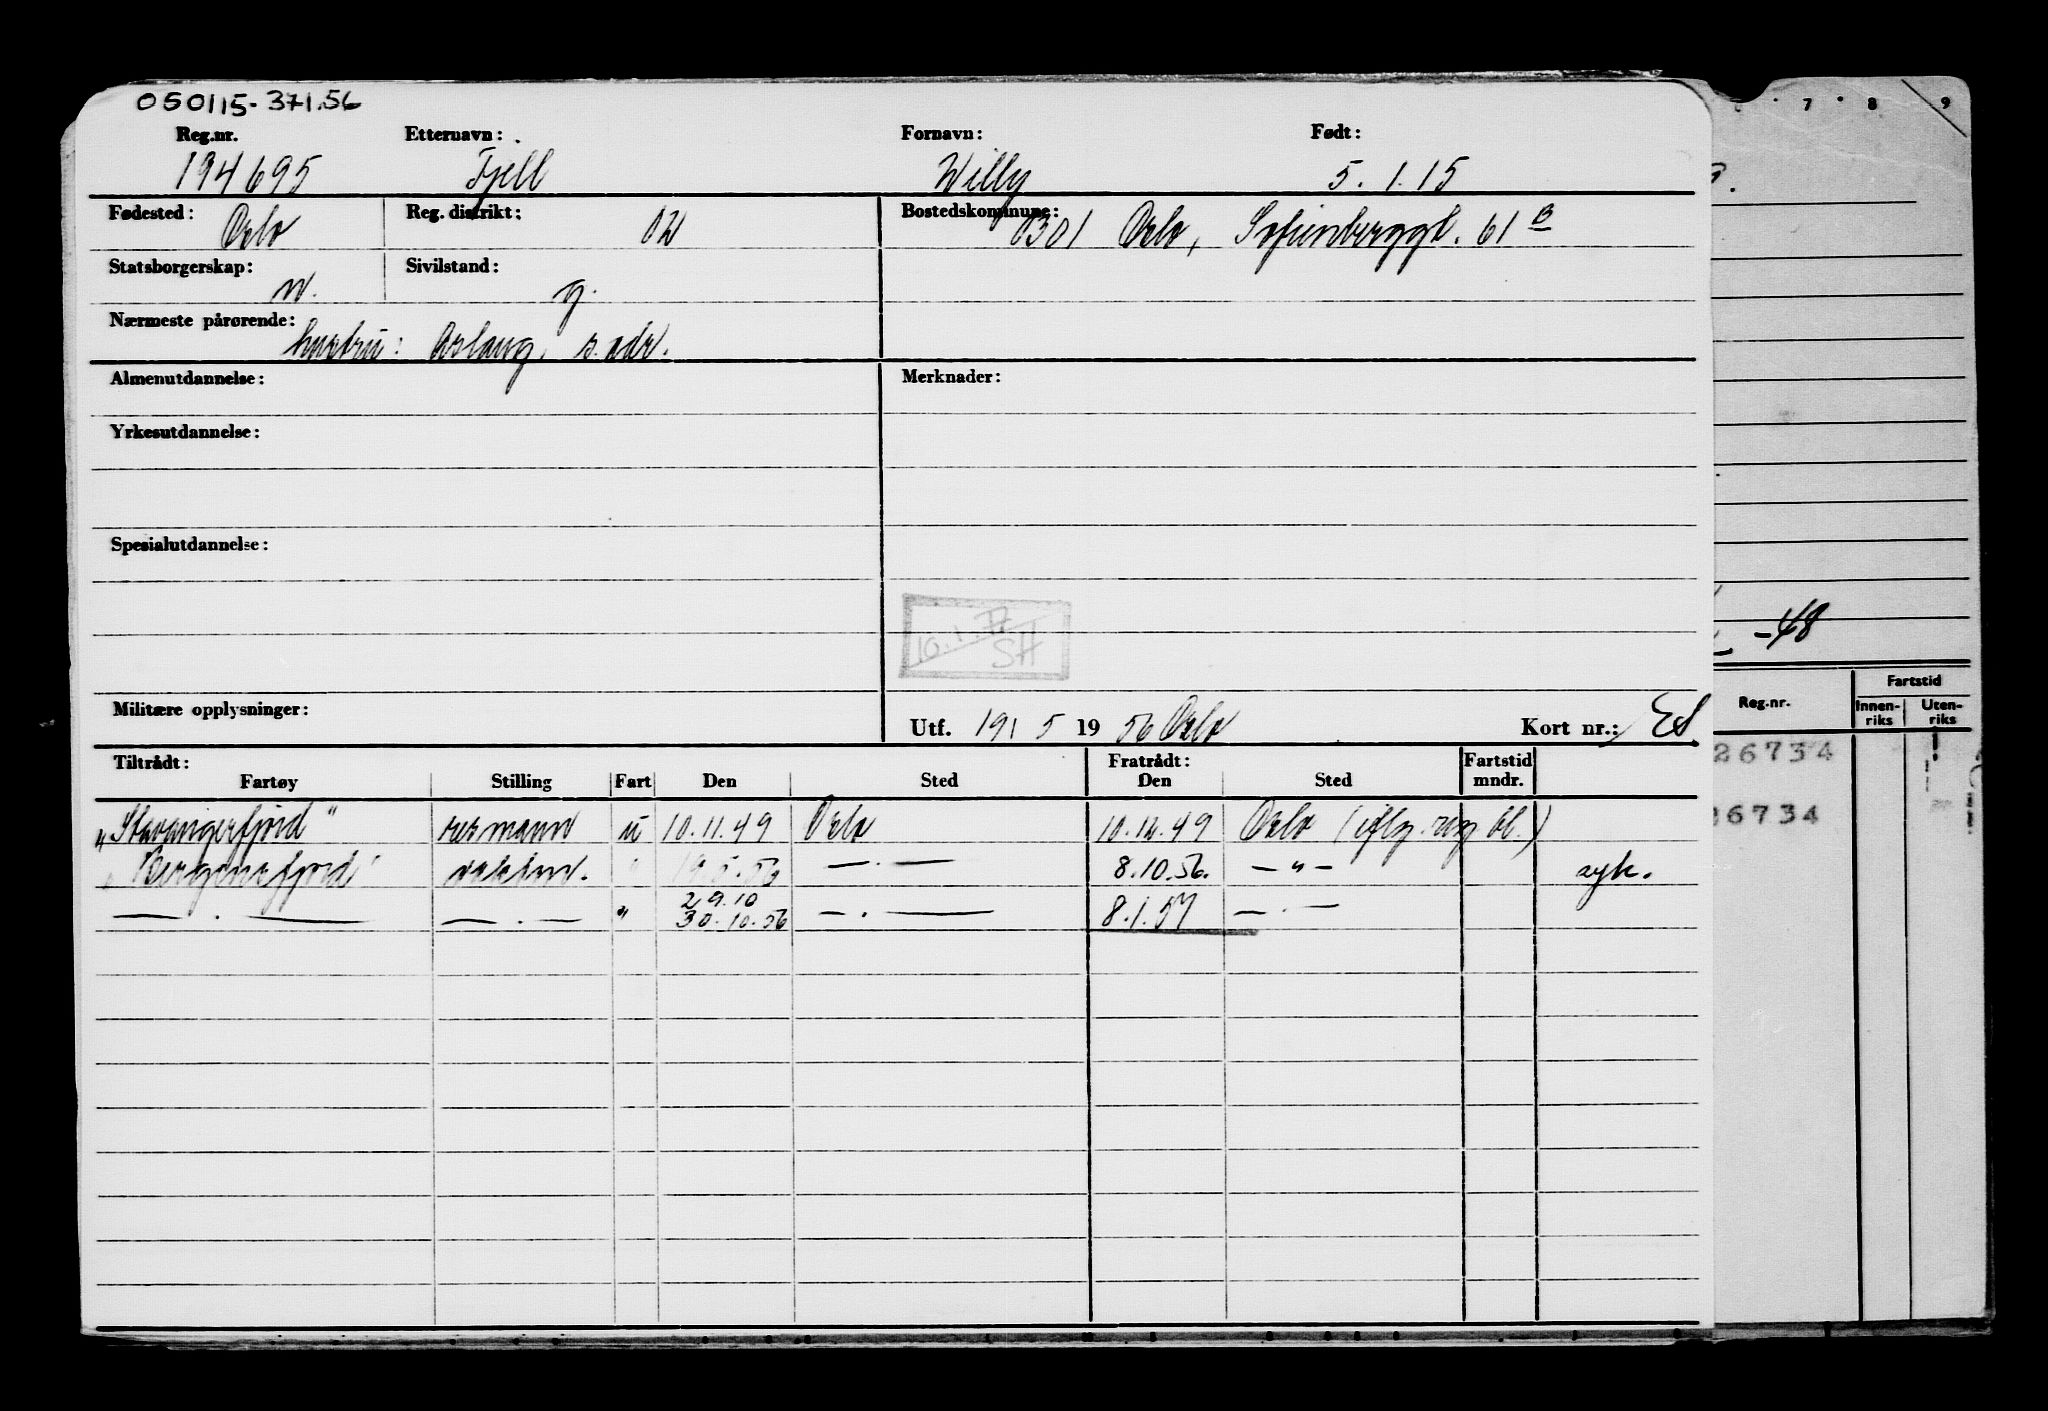 050115-371.56
Reg.nr. Etternavn: Fornavn: Født:
194695 Fjell Willy 5.1.15
Fødested: Oslo Reg. distrikt: 02 Bostedskommune: 0301 Oslo, Sofienberggt. 61 B
Statsborgerskap: n. Sivilstand: g.
Nærmeste pårørende: hustru: Aslaug, s. adr.
Almenutdannelse: Merknader:
Yrkesutdannelse:
Spesialutdannelse:
10.1. SH
Militære opplysninger: Utf. 19/5 1956 Oslo Kort nr.:
Tiltrådt: Fratrådt: Fartstid
Fartøy Stilling Fart Den Sted Den Sted mndr.
"Stavangerfjord" rermann u 10.11.49 Oslo 10.12.49 Oslo (iflg. rig. bl.)
"Bergensfjord" " 19.5.56 — . — 8.10.56. — " — syk.
— . — — . — " 29.10
30.10.56 — . — 8.1.57 — . —
7 8 9
-48
Reg.nr. Fartstid
Innen-riks Uten-riks
26734
6734